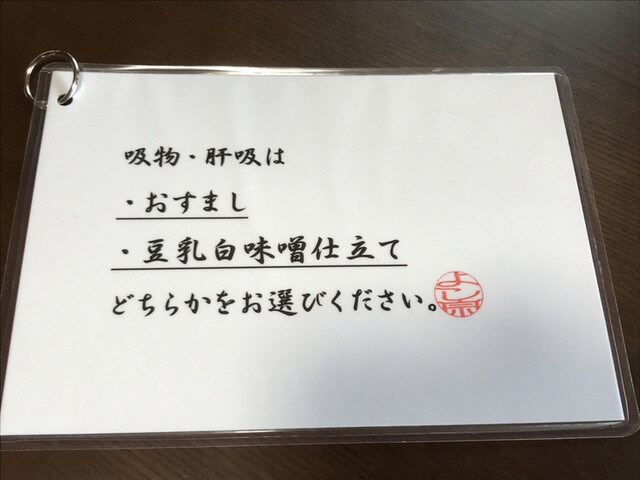 吸物・肝吸は
・おすまし
・豆乳白味噌仕立て
どちらかをお選びください。